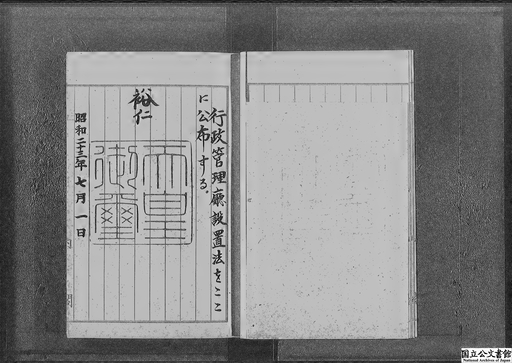 行政管理廳設置法をここ
に公布する。
裕仁
天皇
御璽
昭和二十三年七月一日
国立公文書館
National Archives of Japan